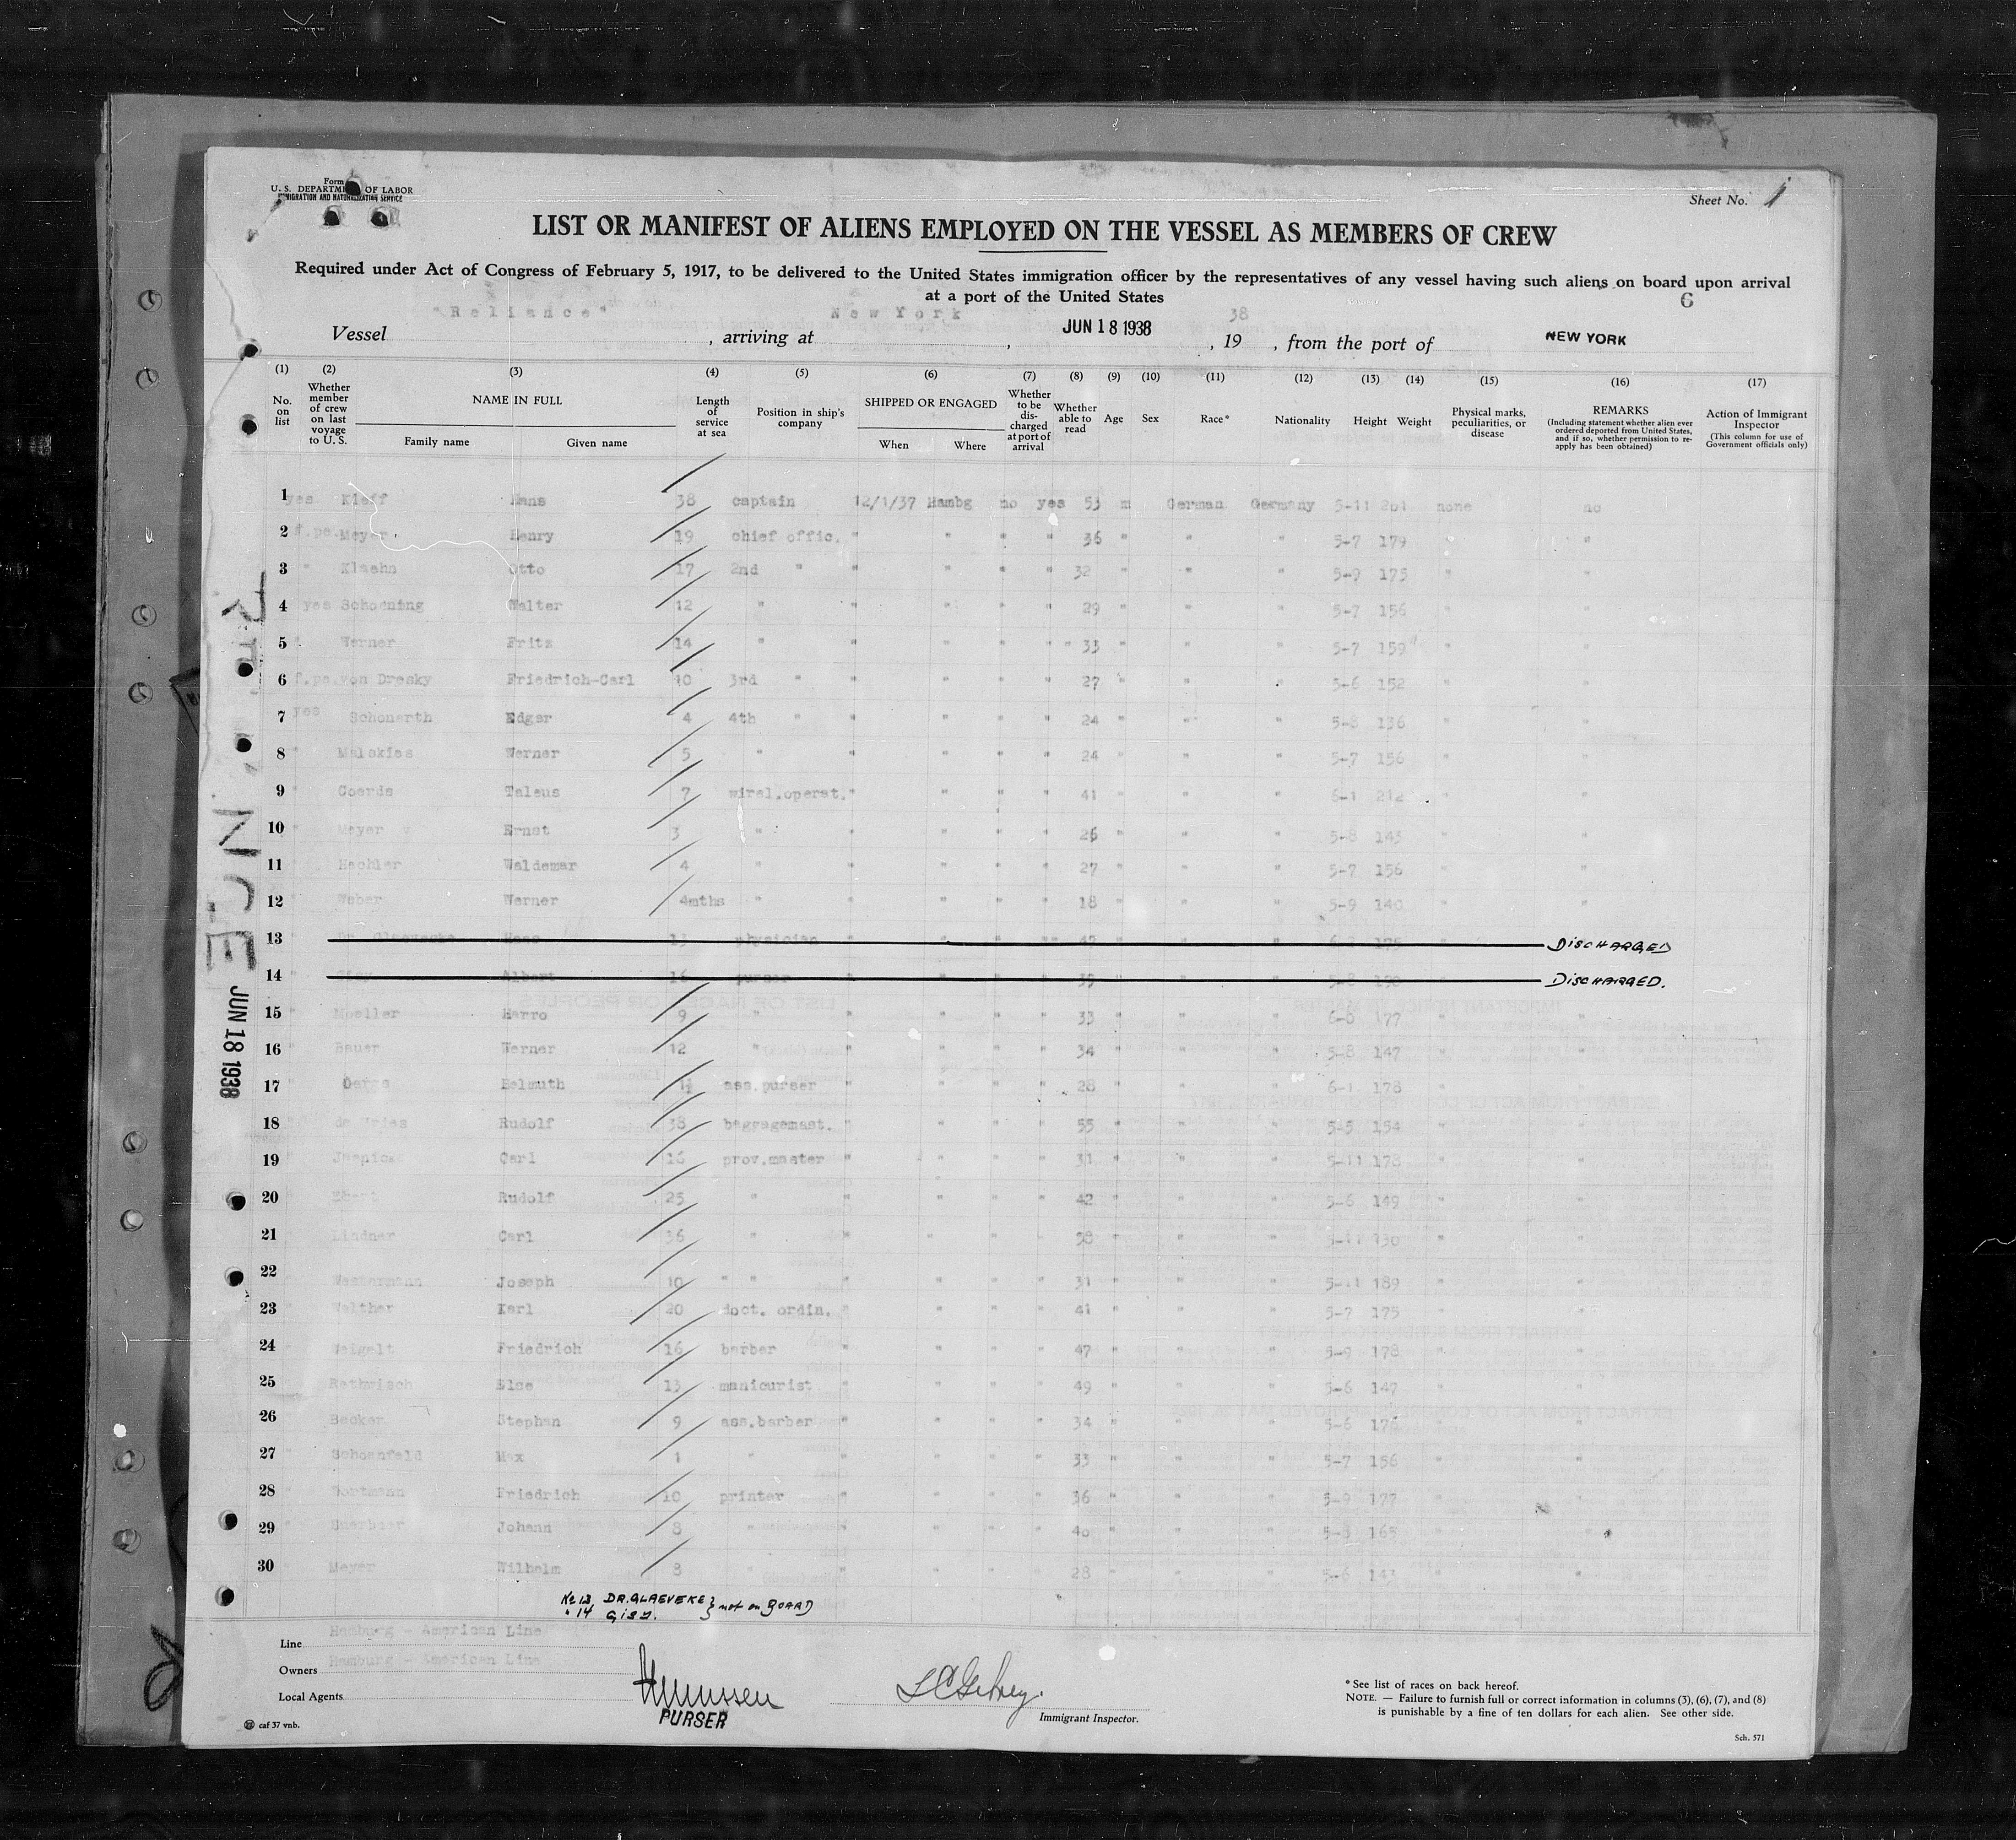 Form
U. S. DEPARTMENT OF LABOR
IMMIGRATION AND NATURALIZATION SERVICE
Sheet No. 1
LIST OR MANIFEST OF ALIENS EMPLOYED ON THE VESSEL AS MEMBERS OF CREW
Required under Act of Congress of February 5, 1917, to be delivered to the United States immigration officer by the representatives of any vessel having such aliens on board upon arrival
at a port of the United States
6
Vessel "Reliance", arriving at New York, JUN 18 1938, 19 38, from the port of NEW YORK
(1) (2) (3) (4) (5) (6) (7) (8) (9) (10) (11) (12) (13) (14) (15) (16) (17)
No. on list
Whether member of crew on last voyage to U. S.
NAME IN FULL
Family name
Given name
Length of service at sea
Position in ship's company
SHIPPED OR ENGAGED
When
Where
Whether to be discharged at port of arrival
Whether able to read
Age
Sex
Race*
Nationality
Height
Weight
Physical marks, peculiarities, or disease
REMARKS
(Including statement whether alien ever ordered deported from United States, and if so, whether permission to reapply has been obtained)
Action of Immigrant Inspector
(This column for use of Government officials only)
1 yes Kieff Hans 38 captain 12/1/37 Hambg no yes 53 m German Germany 5-11 none no
2 Meyer Henry 19 chief offic. " " " " 36 " " " 5-7 179 " "
3 " Klaehn Otto 17 2nd " " " " " 32 " " " 5-9 175 " "
4 yes Schoening Walter 12 " " " " " 29 " " " 5-7 156 " "
5 " Werner Fritz 14 " " " " " 33 " " " 5-7 159 " "
6 von Dresky Friedrich-Carl 10 3rd " " " " " 27 " " " 5-6 152 " "
7 yes Schonerth Edgar 4 4th " " " " " 24 " " " 5-8 136 " "
8 " Malskies Werner 5 " " " " " 24 " " " 5-7 156 " "
9 " Coerds Taleus 7 wirel.operat. " " " " 41 " " " 6-1 212 " "
10 " Meyer Ernst 3 " " " " " 26 " " " 5-8 143 " "
11 " Hachler Waldemar 4 " " " " " 27 " " " 5-7 156 " "
12 " Weber Werner 4mths " " " " " 18 " " " 5-9 140 " "
13 physician DISCHARGED
14 Albert 16 purser DISCHARGED.
15 " Moeller Harro 9 " " " " " 33 " " " 6-0 177 " "
16 " Bauer Werner 12 " " " " " 34 " " " 5-8 147 " "
17 " Helmuth 1½ ass.purser " " " " 28 " " " 6-1 178 " "
18 " de Vries Rudolf 38 baggagemast. " " " " 55 " " " 5-5 154 " "
19 " Carl 16 prov.master " " " " 31 " " " 5-11 178 " "
20 " Rudolf 25 " " " " " 42 " " " 5-6 149 " "
21 " Lindner Carl 36 " " " " " 58 " " " 5-11 130 " "
22 " Westermann Joseph 10 " " " " " " 31 " " " 5-11 189 " "
23 " Walther Karl 20 doct. ordin. " " " " 41 " " " 5-7 175 " "
24 " Weigelt Friedrich 16 barber " " " " 47 " " " 5-9 178 " "
25 " Rathwisch Else 13 manicurist " " " " 49 " " " 5-6 147 " "
26 " Becker Stephan 9 ass.barber " " " " 34 " " " 5-6 176 " "
27 " Schoenfeld Max 1 " " " " " 33 " " " 5-7 156 " "
28 " Wortmann Friedrich 10 printer " " " " 36 " " " 5-9 177 " "
29 " Johann 8 " " " " " 40 " " " 5-8 165 " "
30 Meyer Wilhelm 8 " " " " " 28 " " " 5-6 143 " "
JUN 18 1938
No 13 DR. GLAEVEKE } not on BOARD
" 14 Gisy.
Line Hamburg - American Line
Owners Hamburg - American Line
Local Agents
PURSER
Immigrant Inspector.
* See list of races on back hereof.
NOTE. — Failure to furnish full or correct information in columns (3), (6), (7), and (8)
is punishable by a fine of ten dollars for each alien. See other side.
caf 37 vnb.
Sch. 571